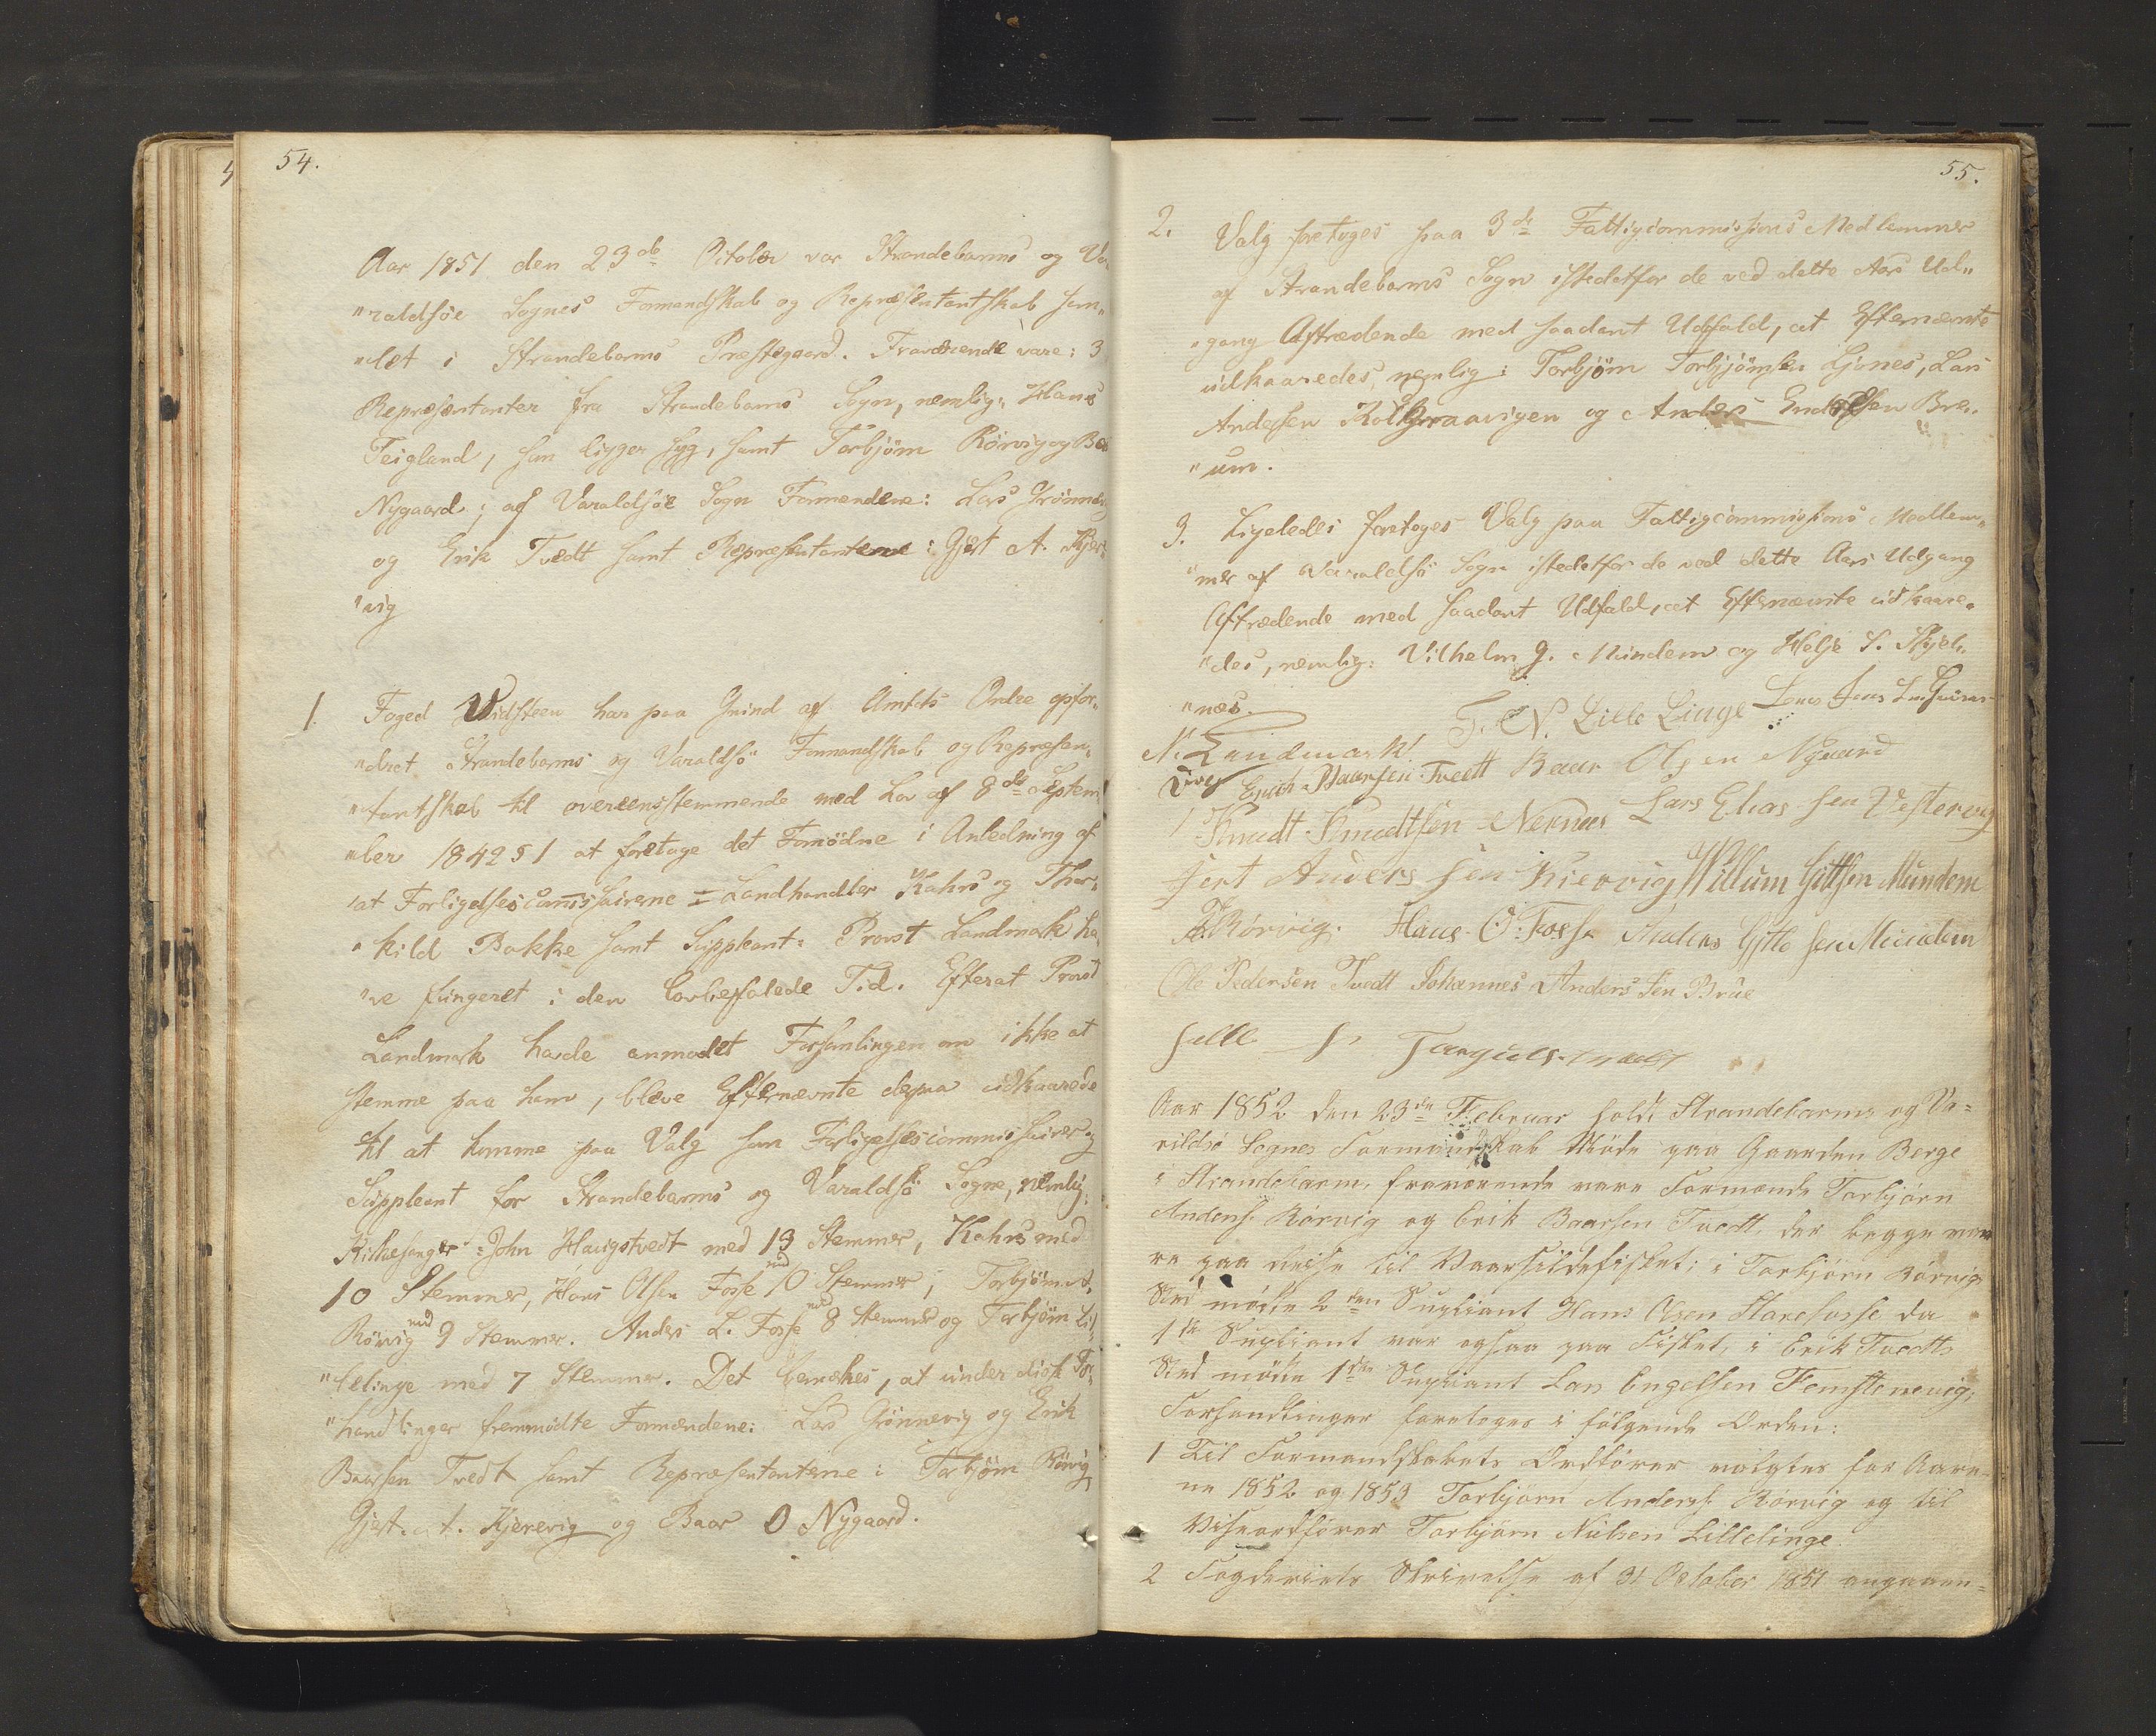 54.
Aar 1851 den 23de October var Strandebarms og Va
"raldsöe Sognes Formandskab og Repræsentantskab sam„
"let i Strandebarms Præstegaard. Fraværende vare: 3
Repræsentanter fra Strandebarms Sogn, nemlig: Hans
Teigland, som ligger syg, samt Torbjörn Rörvig og Baar
Nygaard; af Varaldsöe Sogn Formændene: Lars Grönnevig
og Erik Tvedt samt Repræsentanterne: Gjert A. Kjer„
"vig
1. Foged Vidsteen har paa Grund af Amtets Ordre opfor„
"dret Strandebarms og Varaldsö Formandskab og Repræsen„
"tantskab til overeensstemmende med Lov af 8de Septem
"ber 1842 § 1 at foretage det Fornödne i Anledning af
"at Forligelsescommissairerne Landhandler Kahrs og Thor„
"kild Bakke samt Suppleant: Provst Landmark ha„
"ve fungeret i den lovbefalede Tid. Efterat Provst
Landmark havde anmodet Forsamlingen om ikke at
stemme paa ham, bleve Efternævnte derpaa udkaarede
til at komme paa Valg som Forligelsescommissairer og
Suppleant for Strandebarms og Varaldsö Sogne, nemlig:
Kirkesanger John Haugstvedt med 13 Stemmer, Kahrs med
10 Stemmer, Hans Olsen Fosse med 10 Stemmer, Torbjörn A.
Rörvig med 9 Stemmer. Anders L. Fosse med 8 Stemmer og Torbjörn Lil„
"lelinge med 7 Stemmer. Det bemærkes, at under disse For„
"handlinger fremmödte Formændene: Lars Grönnevig og Erik
Baarsen Tvedt samt Repræsentanterne: Torbjörn Rörvig
Gjert A. Kjerevig og Baar O Nygaard.
55.
2. Valg foretoges paa 3de Fattigcommissions Medlemmer
af Strandebarms Sogn istedetfor de ved dette Aars Ud„
"gang Aftrædende med saadant Udfald, at Efternævnte
udkaaredes, nemlig: Torbjörn Torbjörnsen Ljones, Lars
Andersen Graavigen og Anders Endresen Bru„
"um.
3. Ligeledes foretoges Valg paa Fattigcommissions Medlem„
"mer af Varaldsö Sogn istedetfor de ved dette Aars Udgang
Aftrædende med saadant Udfald, at Efternævnte udkaare„
"des, nemlig: Vilhelm G. Mundem og Helje S. Skjel„
"næs.
N. Landmark T. N. Lille Linge
Erich Baarsen Tvedt Baar Olsen Nygaard
Knudt Knudtsen Nernes Lars Elias sen Vestervig
Jert Anders sen Kiervig Willum Gittsen Mundem
T. A. Rörvig. Hans O. Fosse Anders Gitle sen Mundem
Ole Pedersen Tvedt Johannes Anders sen Brue
Aar 1852 den 23de Februar holdt Strandebarms og Va=
rildsö Sognes Formandskab Möde paa Gaarden Berge
i Strandebarm, fraværende vare Formænde Torbjörn
Anders. Rörvig og Erik Baarsen Tvedt, der begge va
re paa Reise til Vaarsildefisket; i Torbjörn Rörvigs
Sted mödte 2den Supliant Hans Olsen Fosse da
1te Supliant var ogsaa paa Fisket, i Erik Tvedts
Sted mödte 1ste Supliant Lars Engelsen Femstenevig,
Forhandlinger foretoges i fölgende Orden:
1 Til Formandskabets Ordförer valgtes for Aare=
ne 1852 og 1853 Torbjörn Anders. Rörvig og til
Viseordförer Torbjörn Nielsen Lillelinge.
2 Fogderiets Skrivelse af 31 October 1851 angaaen=